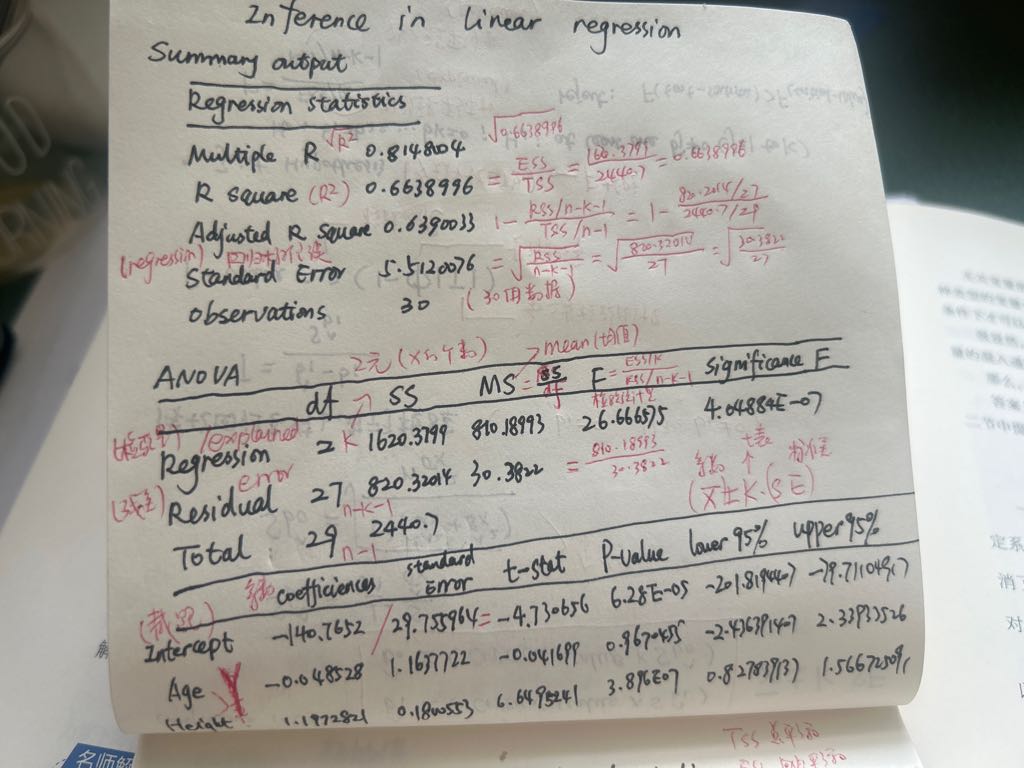 Inference in linear regression
Summary output
Regression statistics
Multiple R √R² 0.8148004 √0.6638996
R square (R²) 0.6638996 = ESS/TSS = 1620.3799/2440.7 = 0.6638996
Adjusted R Square 0.6390033 1 - RSS/n-k-1 / TSS/n-1 = 1 - 820.32014/27 / 2440.7/29
(regression)
Standard Error 5.5120076 = √RSS/n-k-1 = √820.32014/27 = √30.3822/27
Observations 30 (30组数据)
2元 (X的个数) mean (均值)
ANOVA df SS MS = SS/df F = ESS/K / RSS/n-k-1 significance F
explained
Regression 2 K 1620.3799 810.18993 26.666575 4.04884E-07
error = 810.18993/30.3822
Residual 27 820.32014 30.3822 (X±K·(SE)
n-k-1
Total 29 2440.7
n-1
系数 coefficiences standard Error t-stat P-value lower 95% upper 95%
(截距)
Intercept -140.7652 / 29.755964 = -4.730656 6.28E-05 -201.8194407 -79.7110491
Age -0.048528 1.1637722 -0.041699 0.9670455 -2.436391407 2.33933526
Height 1.1972821 0.1800553 6.6495241 3.896E07 0.827839137
TSS
名师解